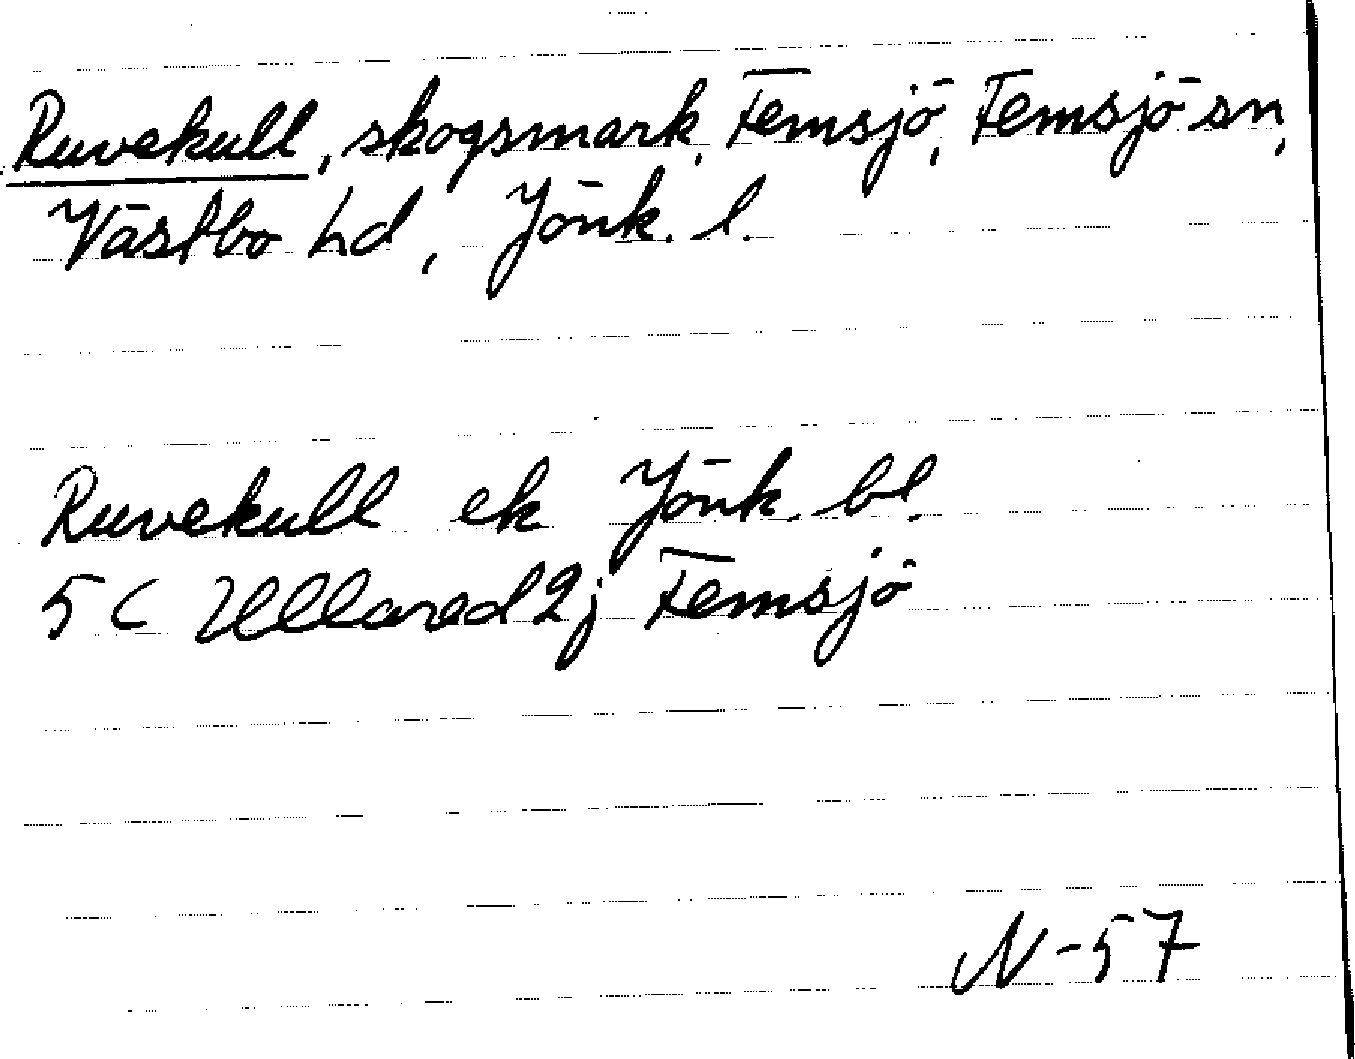 Ruvekull, skogsmark, Femsjö, Femsjö sn,
Västbo hd, Jönk. l.
Ruvekull ek Jönk. bl.
5 C Ullared 2j Femsjö
N-57